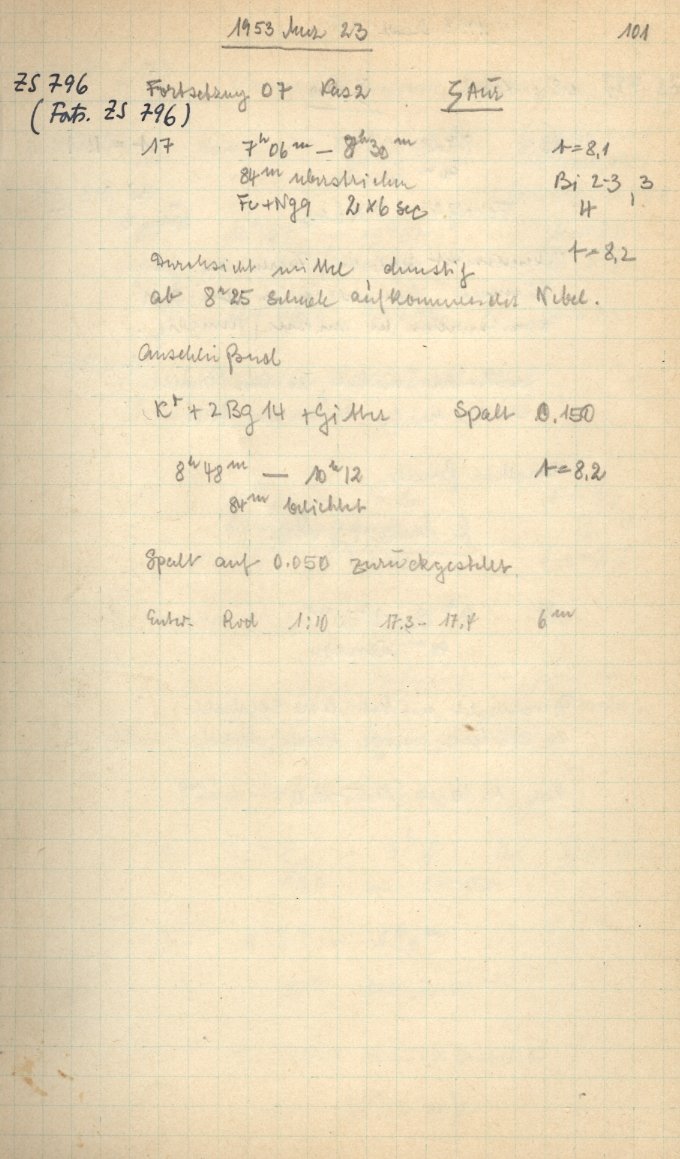 1953 März 23 101
ZS 796 Fortsetzung 07 Kas 2 ζ Aur
(Forts. ZS 796)
17 7ʰ06ᵐ — 8ʰ30ᵐ t=8,1
84ᵐ überstrichen Bi 2-3, 3
Fe + Ng9 2 x 6 sec 4
t=8,2
Durchsicht mittel, dunstig
ab 8ʰ25 stark aufkommender Nebel.
Anschließend
+ 2 Bg 14 + Gitter Spalt 0.150
8ʰ48ᵐ — 10ʰ12 t=8,2
84ᵐ belichtet
Spalt auf 0.050 zurückgestellt.
Entw. Rod 1:10 17.3 - 17.4 6ᵐ